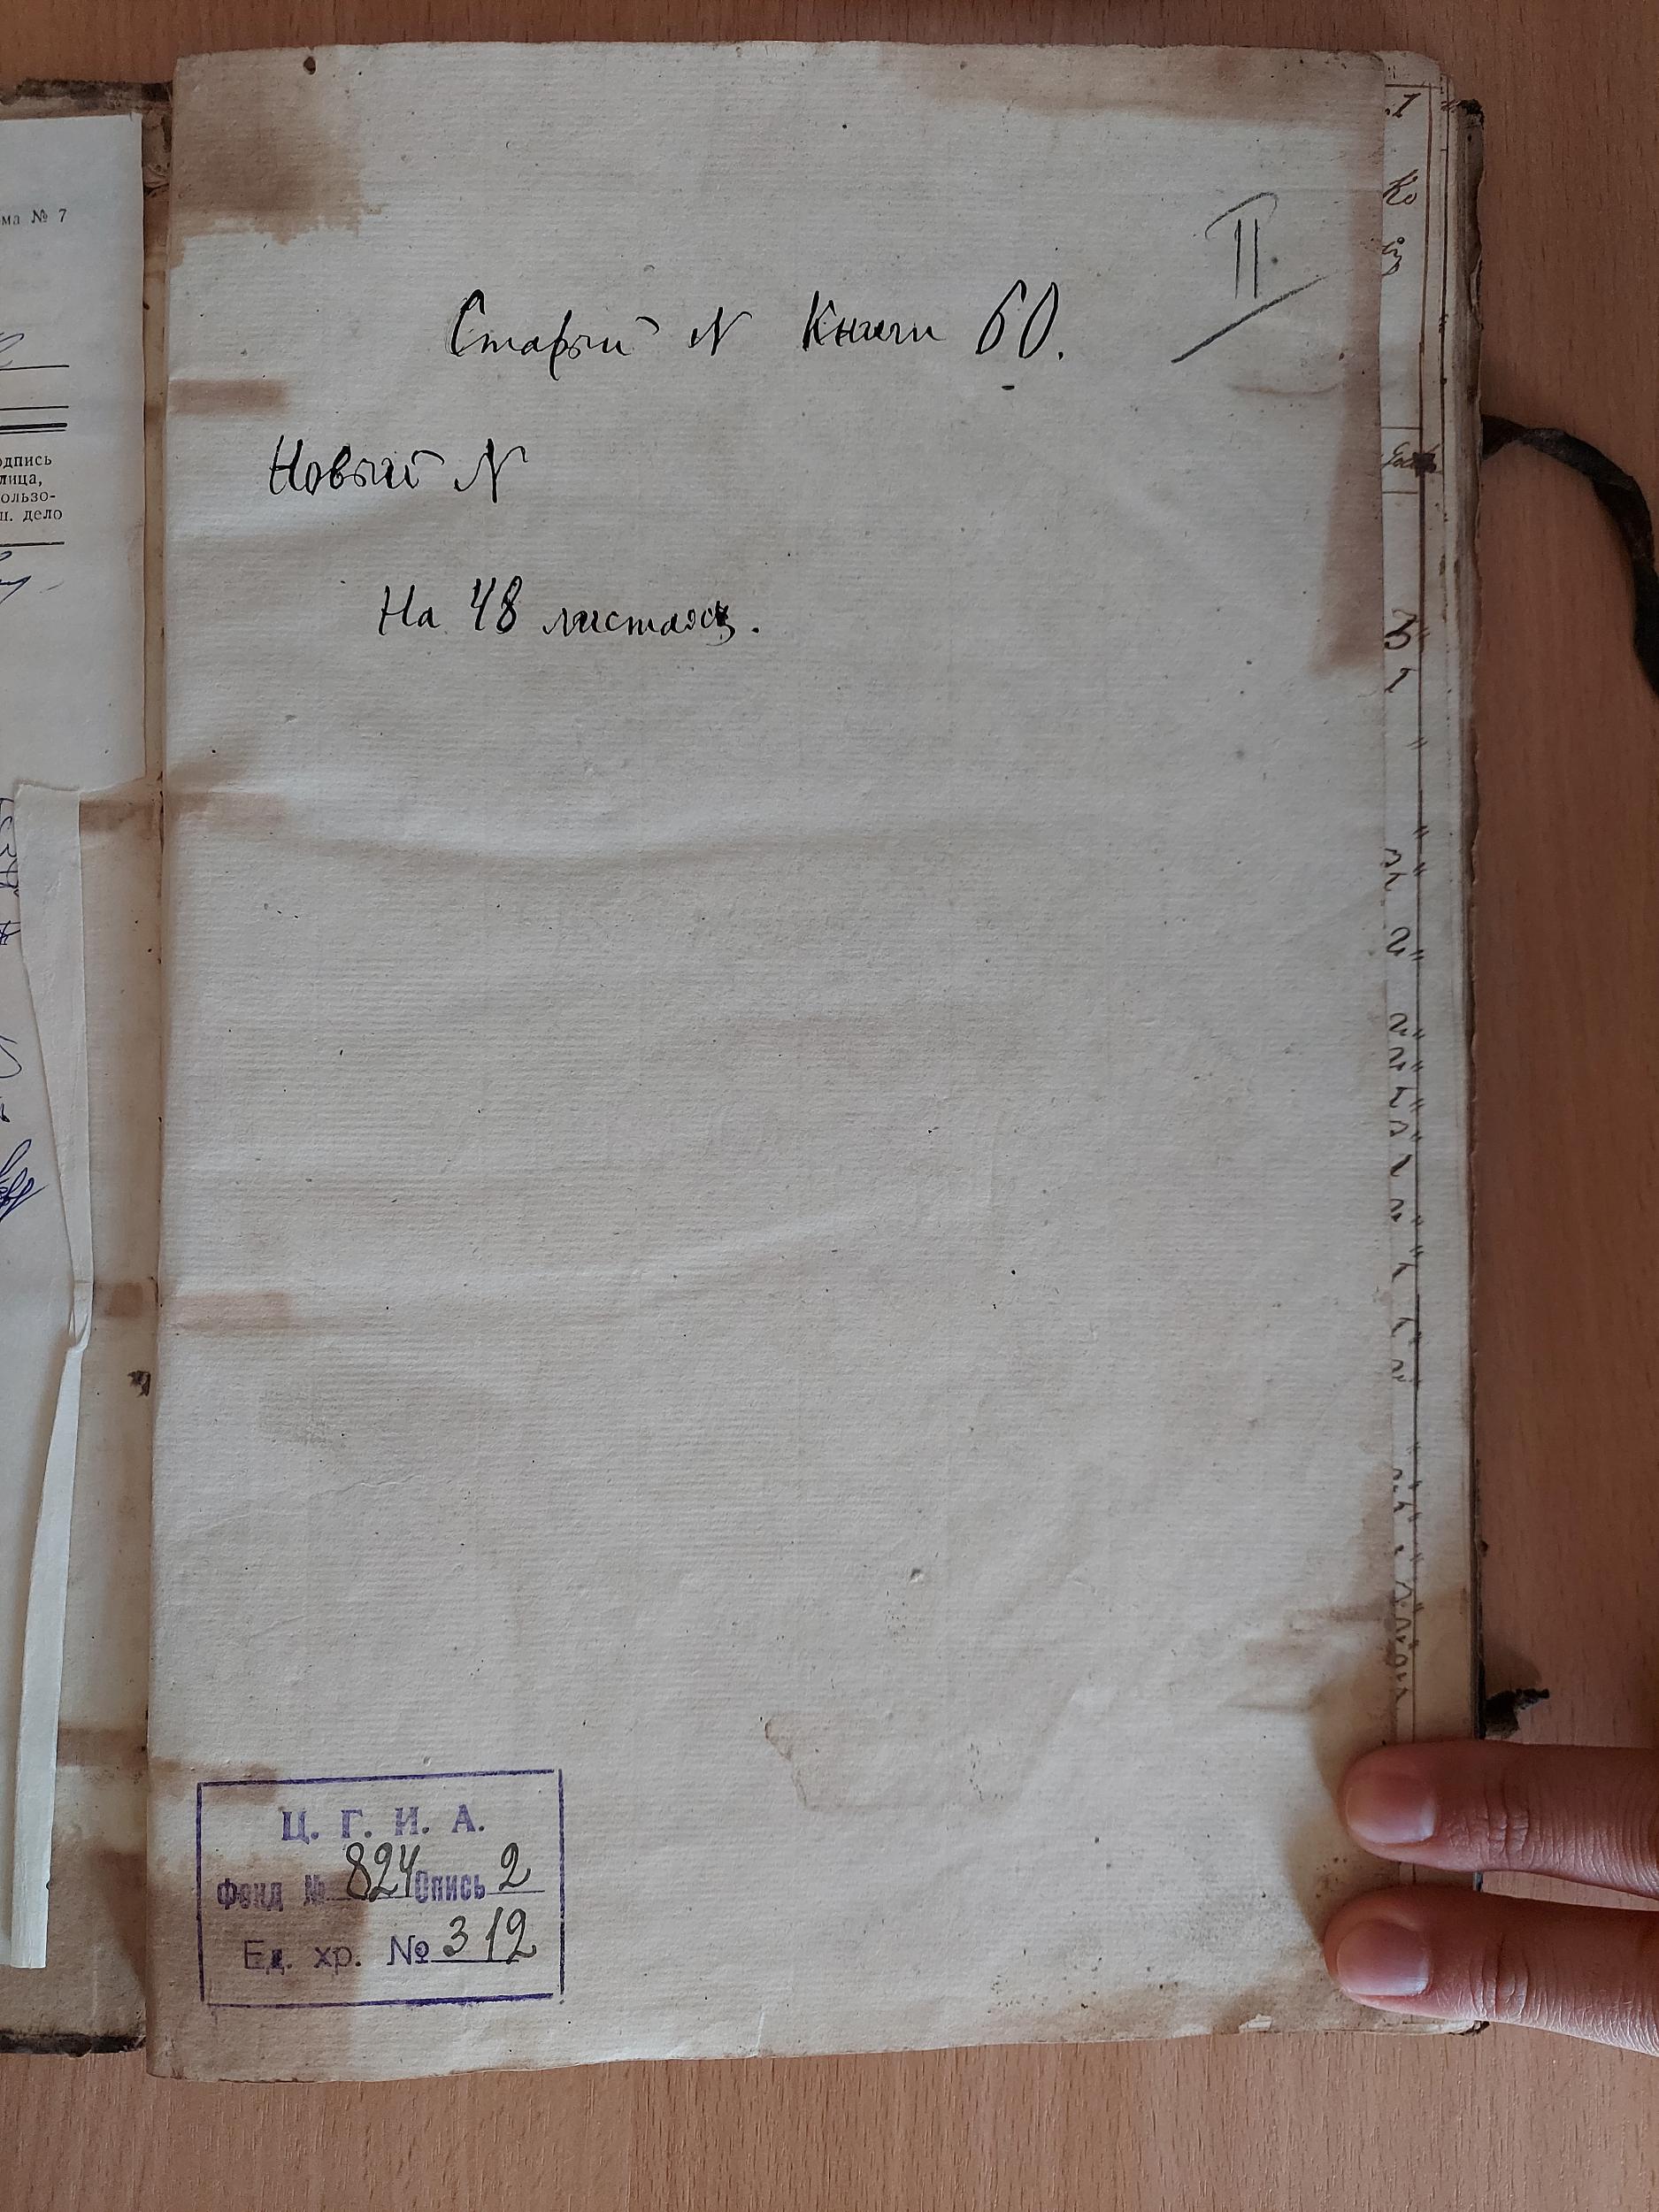 ма № 7
одпись
лица,
ользо-
н. дело
II
Старый N Книги 60.
Новый N
На 48 листахъ.
Ц. Г. И. А.
Фонд № 824 Опись 2
Ед. хр. № 312